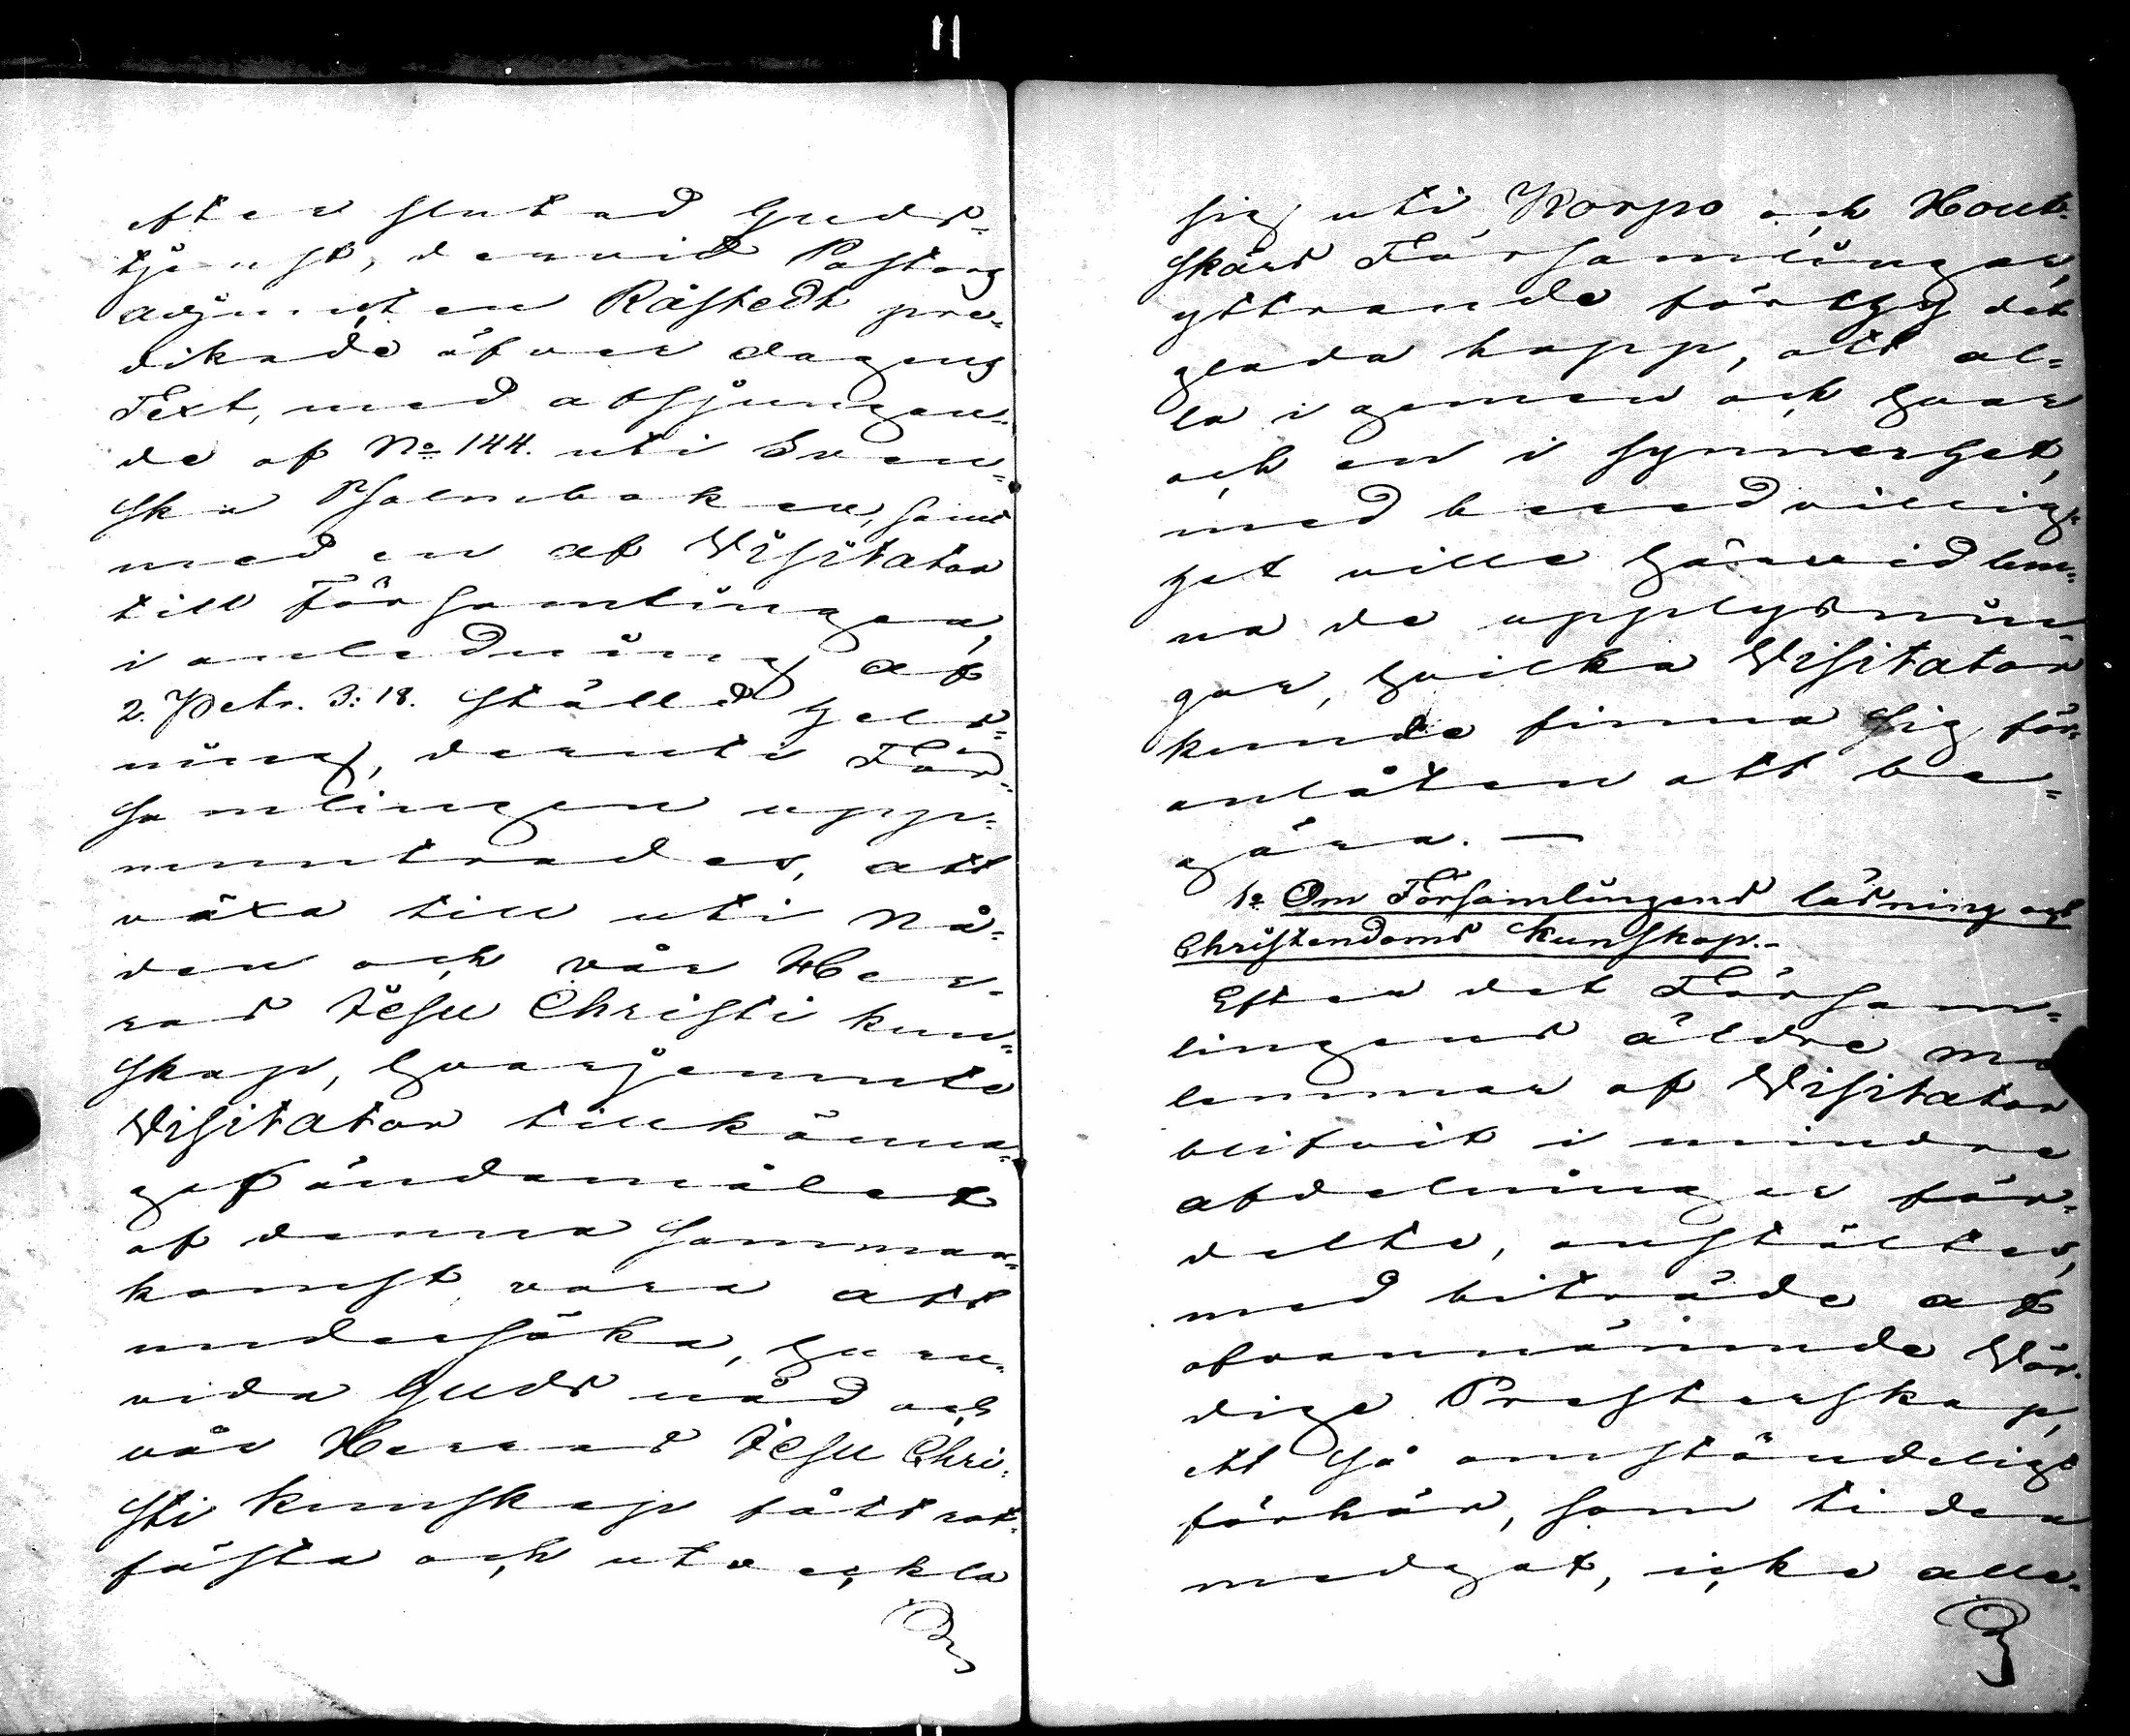 efter slutad Guds-
tjenst, dervid Pastors
adjuncten Råstedt pre-
dikade öfver dagens
Text, med afsjungan-
de af No 144. uti Sven-
ska Psalmboken, samt
med en af Visitator
till Församlingen,
i anledning af
2. Petr. 3:18. ställd hels-
ning, deruti För-
samlingen upp-
muntrades, att
växa till uti Nå-
den och vår Her-
ras Jesu Christi kun-
skap, hvarjemnte
Visitator tillkänna-
gaf ändamålet
af denna samman-
komst vara att
undersöka, huru-
vida Guds nåd och
vår Herras Jesu Chri-
sti kunskap fått rot-
fästa och utveckla
sig uti Korpo och Hout-
skärs Församlingar,
yttrande förthy det
glada hopp, att al-
la i gemen och hvar
och en i synnerhet,
med beredvillig-
het ville härvid lem-
na de upplysnin-
gar, hvilka Visitator
kunde finna sig för-
anlåten att be-
gära. —
1o Om Församlingens läsning och
Christendoms kunskap.-
Efter det Försam-
lingens äldre med
lemmar af Visitator
blifvit i mindre
afdelningar för-
delte, anstältes,
med biträde af
ofvannämnde Vör-
dige Presterskap,
ett så omständeligt
förhör, som tiden
medgaf, icke alle-